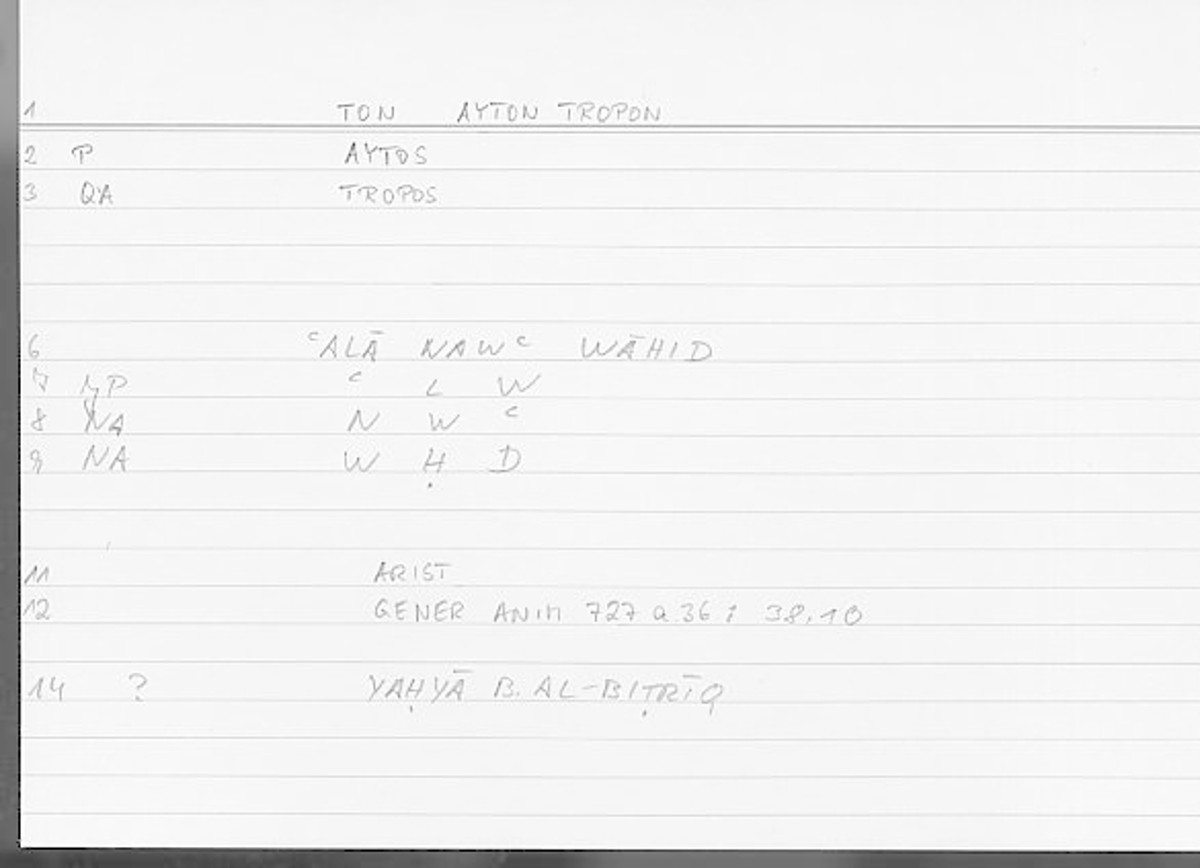 1 TON AYTON TROPON
2 P AYTOS
3 QA TROPOS
6 ʿALĀ NAWʿ WĀHID
7 P ʿ L W
8 NA N W ʿ
9 NA W Ḥ D
11 ARIST
12 GENER ANIM 727 a 36 ; 38,10
14 ? YAḤYĀ B. AL-BIṬRĪQ